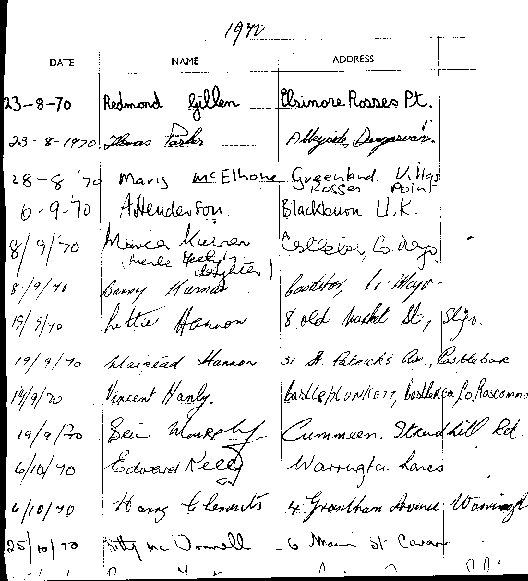 1970
DATE NAME ADDRESS
23-8-70 Redmond Gillen Elsinore Rosses Pt.
23-8-1970 Thomas
28-8-70 McElhone Greenland Villas
Rosses Point
6-9-70 A Henderson. Blackburn U.K.
8/9/70 Kiernan Castlebar, Co. Mayo
daughter)
8/9/70 Castlebar, Co. Mayo.
19/9/70 Lettie Hannon 8 old Market St., Sligo.
19/9/70 Mairead Hannon 31 St. Patricks Av., Castlebar
19/9/70 Vincent Hanly. Castleplunkett, Castlerea, Co. Roscommon
19/9/70 Murphy Cummeen. Strandhill Rd.
6/10/70 Edward Kelly Warrington Lancs
6/10/70 Harry Clements 4 Grantham Avenue Warrington
25/10/70 Mc Donnell 6 Main St Cavan